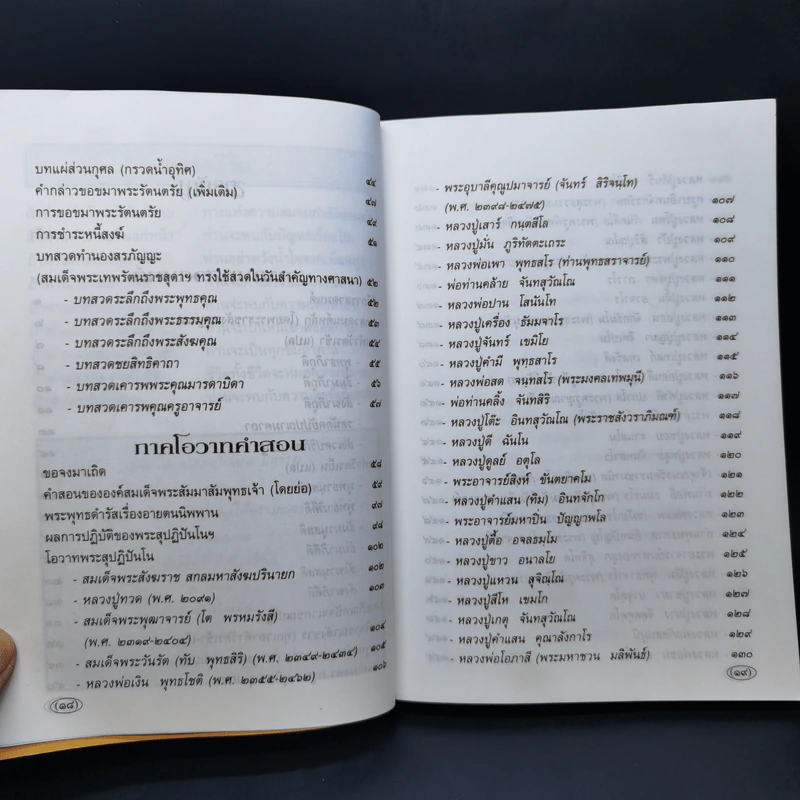 บทแผ่ส่วนกุศล (กรวดน้ำอุทิศ) ๔๔
คำกล่าวขอขมาพระรัตนตรัย (เพิ่มเติม) ๔๗
การขอขมาพระรัตนตรัย ๔๙
การชำระหนี้สงฆ์ ๕๑
บทสวดทำนองสรภัญญะ
(สมเด็จพระเทพรัตนราชสุดาฯ ทรงใช้สวดในวันสำคัญทางศาสนา) ๕๒
- บทสวดระลึกถึงพระพุทธคุณ ๕๒
- บทสวดระลึกถึงพระธรรมคุณ ๕๓
- บทสวดระลึกถึงพระสังฆคุณ ๕๔
- บทสวดชยสิทธิคาถา ๕๕
- บทสวดเคารพพระคุณมารดาบิดา ๕๖
- บทสวดเคารพคุณครูอาจารย์ ๕๗
ภาคโอวาทคำสอน
ขอจงมาเถิด ๕๘
คำสอนขององค์สมเด็จพระสัมมาสัมพุทธเจ้า (โดยย่อ) ๕๙
พระพุทธดำรัสเรื่องอายตนนิพพาน ๙๗
ผลการปฏิบัติของพระสุปฏิปันโนฯ ๙๘
โอวาทพระสุปฏิปันโน ๑๐๒
- สมเด็จพระสังฆราช สกลมหาสังฆปรินายก ๑๐๒
- หลวงปู่ทวด (พ.ศ. ๒๐๙๑) ๑๐๓
- สมเด็จพระพุฒาจารย์ (โต พรหมรังสี)
(พ.ศ. ๒๓๑๙-๒๔๐๔) ๑๐๔
- สมเด็จพระวันรัต (ทับ พุทธสิริ) (พ.ศ. ๒๓๔๙-๒๔๓๔) ๑๐๕
- หลวงพ่อเงิน พุทธโชติ (พ.ศ. ๒๓๕๕-๒๔๖๒) ๑๐๖
(๑๘)
- พระอุบาลีคุณูปมาจารย์ (จันทร์ สิริจนฺโท)
(พ.ศ. ๒๓๙๘-๒๔๗๕) ๑๐๗
- หลวงปู่เสาร์ กนฺตสีโล ๑๐๘
- หลวงปู่มั่น ภูริทัตตะเถระ ๑๐๙
- หลวงพ่อเพา พุทธสโร (ท่านพุทธสราจารย์) ๑๑๐
- พ่อท่านคล้าย จันทสุวัณโณ ๑๑๑
- หลวงพ่อปาน โสนันโท ๑๑๒
- หลวงปู่เครื่อง ธัมมจาโร ๑๑๓
- หลวงปู่จันทร์ เขมิโย ๑๑๔
- หลวงปู่คำมี พุทธสาโร ๑๑๕
- หลวงพ่อสด จนฺทสโร (พระมงคลเทพมุนี) ๑๑๖
- พ่อท่านคลิ้ง จันทสิริ ๑๑๗
- หลวงปู่โต๊ะ อินทสุวัณโณ (พระราชสังวราภิมณฑ์) ๑๑๘
- หลวงปู่ดี ฉันโน ๑๑๙
- หลวงปู่ดูลย์ อตุโล ๑๒๐
- พระอาจารย์สิงห์ ขันตยาคโม ๑๒๑
- หลวงปู่คำแสน (ทิม) อินทจักโก ๑๒๒
- พระอาจารย์มหาปิ่น ปัญญาพโล ๑๒๓
- หลวงปู่ตื้อ อจลธมฺโม ๑๒๔
- หลวงปู่ขาว อนาลโย ๑๒๕
- หลวงปู่แหวน สุจิณฺโณ ๑๒๖
- หลวงปู่สีโห เขมโก ๑๒๗
- หลวงปู่เกตุ จันทสุวัณโณ ๑๒๘
- หลวงปู่คำแสน คุณาลังกาโร ๑๒๙
- หลวงพ่อโอภาสี (พระมหาชวน มลิพันธ์) ๑๓๐
(๑๙)